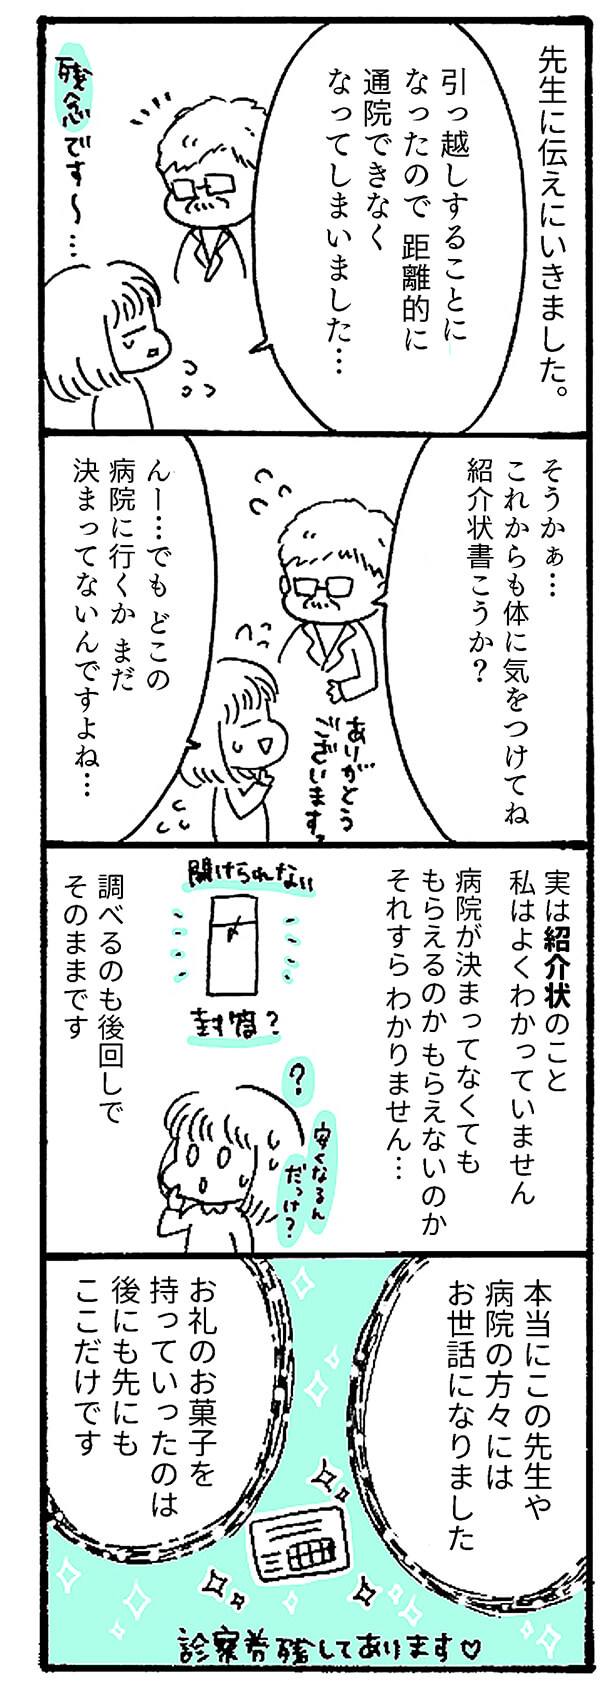 先生に伝えにいきました。
引っ越しすることに
なったので 距離的に
通院できなく
なってしまいました…
残念です〜…
そうかぁ…
これからも体に気をつけてね
紹介状書こうか？
ありがとう
ございます。
んー…でも どこの
病院に行くか まだ
決まってないんですよね…
実は紹介状のこと
私はよくわかっていません
病院が決まってなくても
もらえるのか もらえないのか
それすら わかりません…
開けられない
封筒？
？
安くなるん
だっけ？
調べるのも後回しで
そのままです
本当にこの先生や
病院の方々には
お世話になりました
お礼のお菓子を
持っていったのは
後にも先にも
ここだけです
診察券残してあります♡